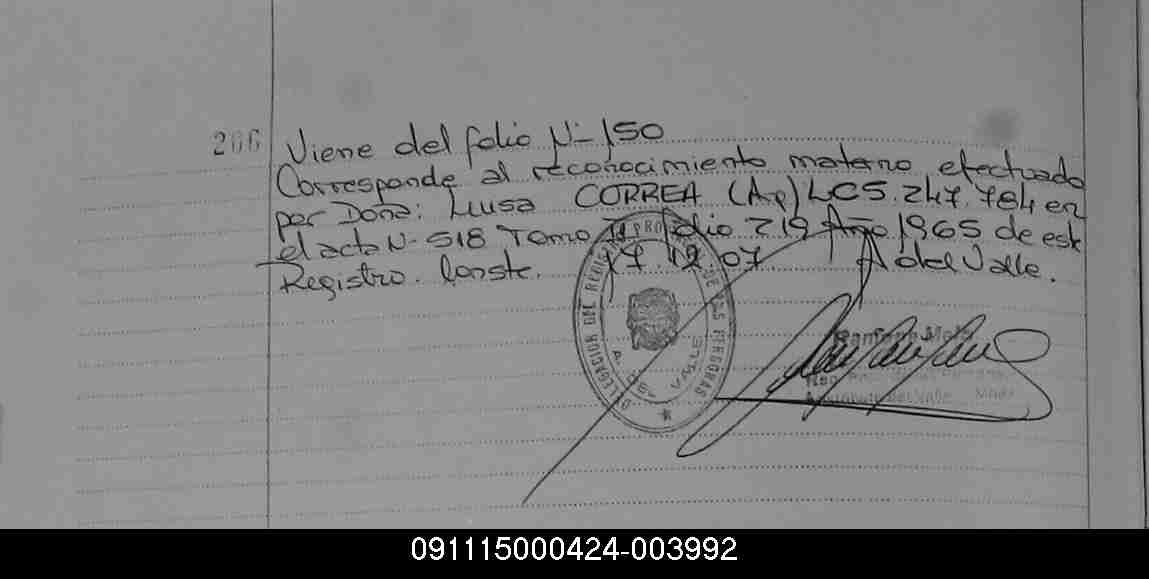 266 Viene del folio Nº 150
Corresponde al reconocimiento materno efectuado
por Doña: Luisa CORREA (Ap) LC5.247.784 en
el acta Nº 518 Tomo II folio 219 Año 1965 de este
Registro. Conste. 17.12.07 A del Valle.
DELEGACION DEL REGISTRO PROVINCIAL DE LAS PERSONAS
A. DEL VALLE
091115000424-003992